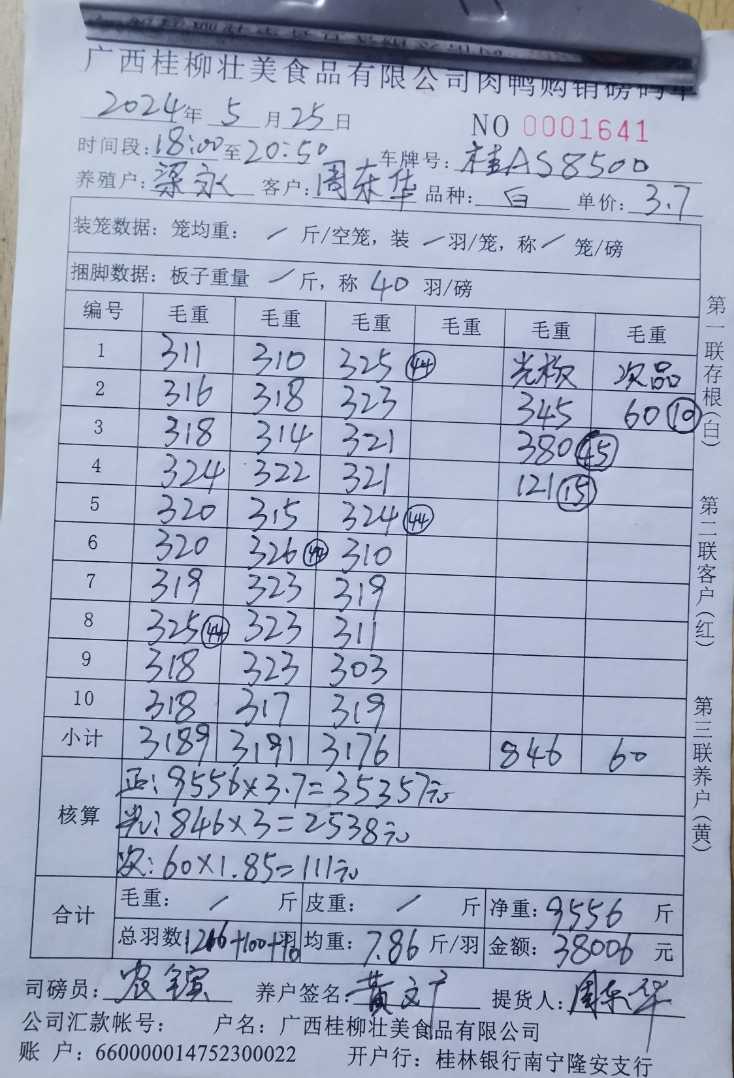 广西桂柳壮美食品有限公司肉鸭购销磅码单
2024年 5 月 25 日 NO 0001641
时间段: 18:00 至 20:50 车牌号: 桂AS8500
养殖户: 梁永 客户: 周东华 品种: 白 单价: 3.7
装笼数据: 笼均重: / 斤/空笼, 装 / 羽/笼, 称 / 笼/磅
捆脚数据: 板子重量 / 斤, 称 40 羽/磅
编号 毛重 毛重 毛重 毛重 毛重 毛重
1 311 310 325 44 光板 次品
2 316 318 323 345 60 10
3 318 314 321 380 45
4 324 322 321 121 15
5 320 315 324 44
6 320 326 44 310
7 319 323 319
8 325 44 323 311
9 318 323 303
10 318 317 319
小计 3189 3191 3176 846 60
核算
正: 9556×3.7=35357元
光: 846×3=2538元
次: 60×1.85=111元
合计
毛重: / 斤 皮重: / 斤 净重: 9556 斤
总羽数: 1216+100+10 羽 均重: 7.86 斤/羽 金额: 38006 元
司磅员: 养户签名: 黄文 提货人: 周东华
公司汇款帐号: 户名: 广西桂柳壮美食品有限公司
账 户: 660000014752300022 开户行: 桂林银行南宁隆安支行
第一联存根(白)
第二联客户(红)
第三联养户(黄)